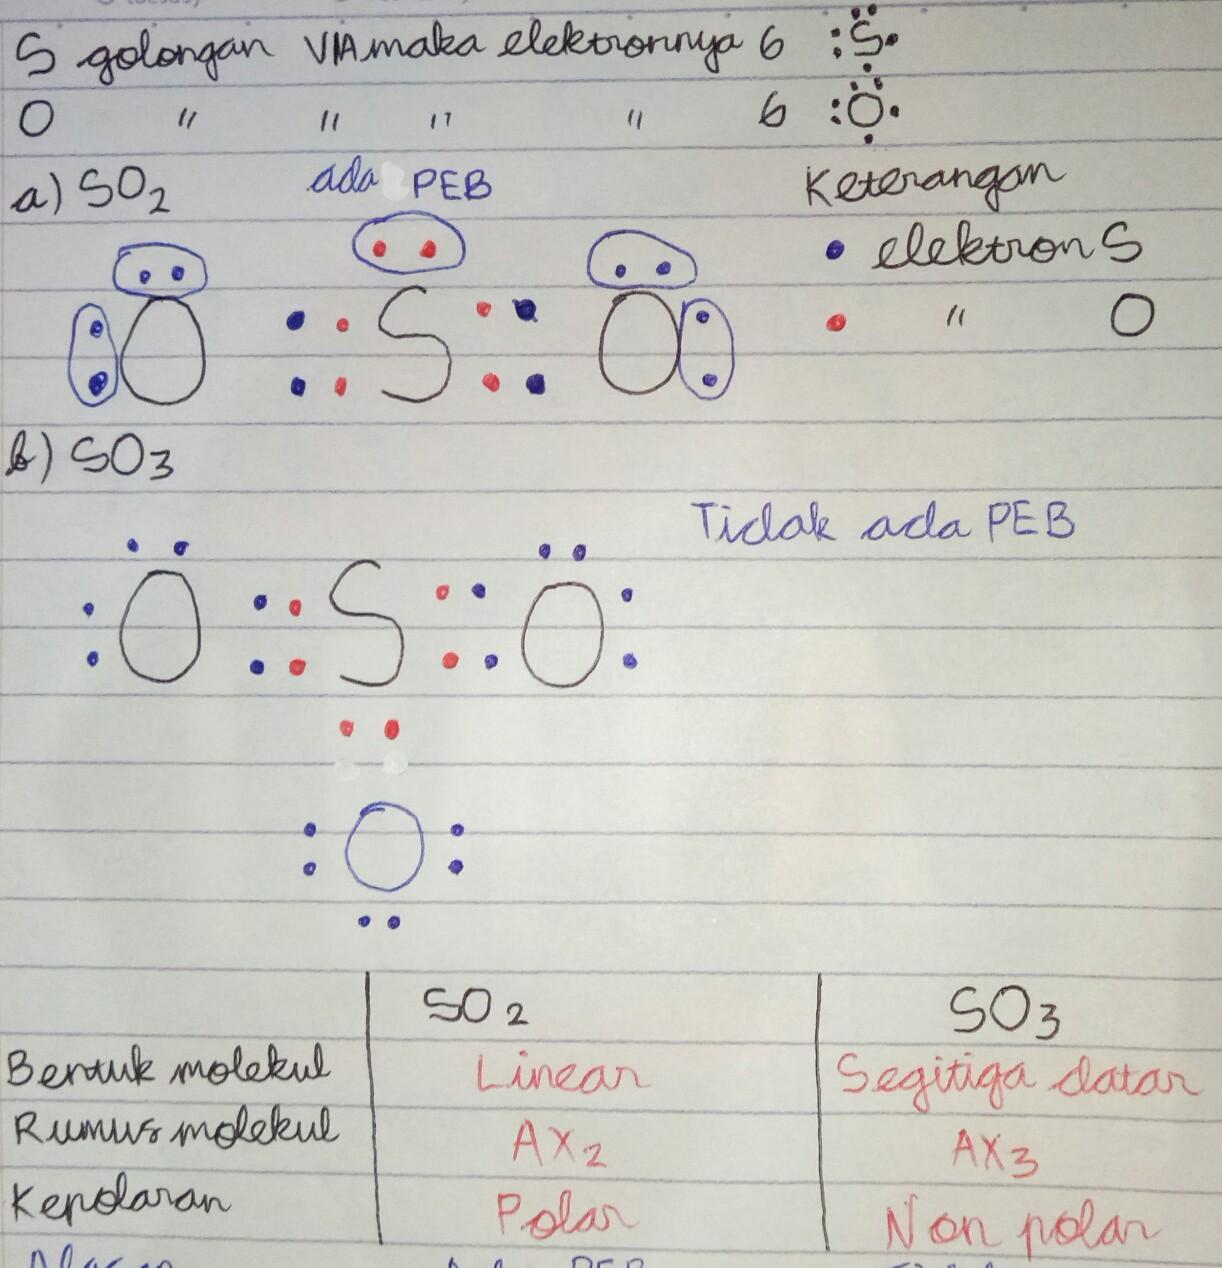 S golongan VIA maka elektronnya 6 :S·
O " " " " 6 :O·
a) SO2 ada PEB Keterangan
• elektron S
O S O • " O
b) SO3
Tidak ada PEB
O S O
O
SO2 SO3
Bentuk molekul Linear Segitiga datar
Rumus molekul AX2 AX3
Kepolaran Polar Non polar